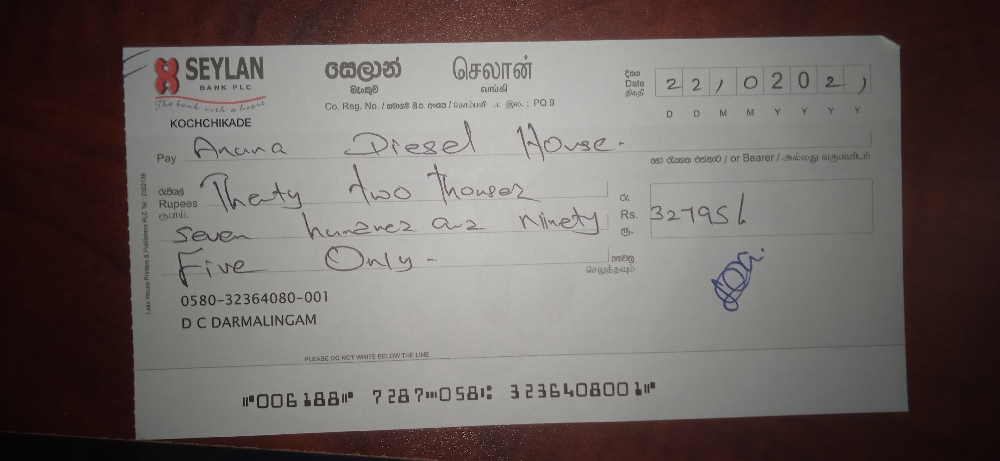 SEYLAN
BANK PLC
The bank with a heart
KOCHCHIKADE
සෙලාන්
බැංකුව
செலான்
வங்கி
Co. Reg. No. / සමාගම් ලි.ප. අංකය / கம்பனி ப. இல. : PQ 9
දිනය
Date
திகதி
22/0202)
D D M M Y Y Y Y
Pay Anana Diesel House.
හෝ රැගෙන එන්නාට / or Bearer / அல்லது வருபவரிடம்
රුපියල්
Rupees
ரூபாய்
Therty two thousez
seven hundrez anz Ninety
Five Only -
රු.
Rs.
ரூ.
32795/
ගෙවනු
செலுத்தவும்
0580-32364080-001
D C DARMALINGAM
PLEASE DO NOT WRITE BELOW THE LINE
⑈006188⑈ 7287⑉058⑆ 3236408001⑈
Lake House Printers & Publishers PLC Tel :